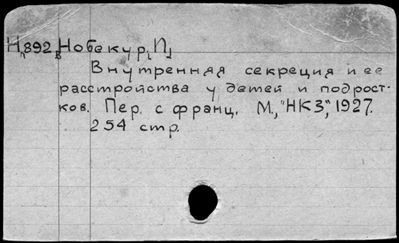 Н 892 Нобекур, П.
Внутренняя секреция и ее
расстройства у детей и подрост-
ков. Пер. с франц. М., "НКЗ", 1927.
254 стр.